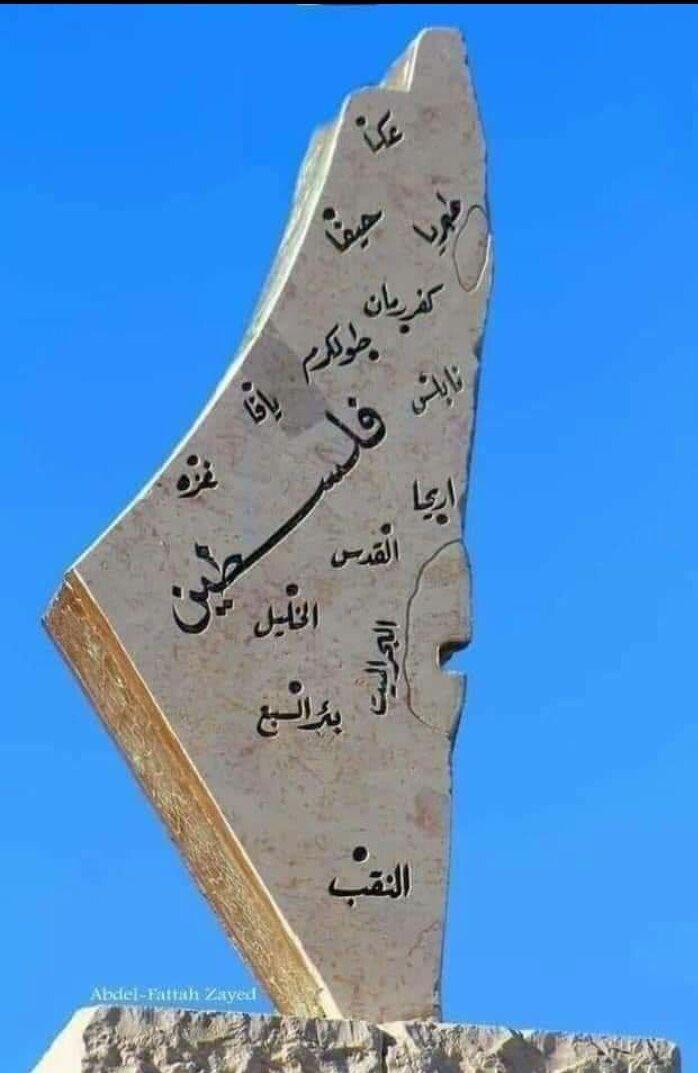 عكا
طبريا
حيفا
كفررمان
طولكرم
نابلس
يافا
فلسطين
غزه
اريحا
القدس
الخليل
البحر الميت
بئر السبع
النقب
Abdel-Fattah Zayed